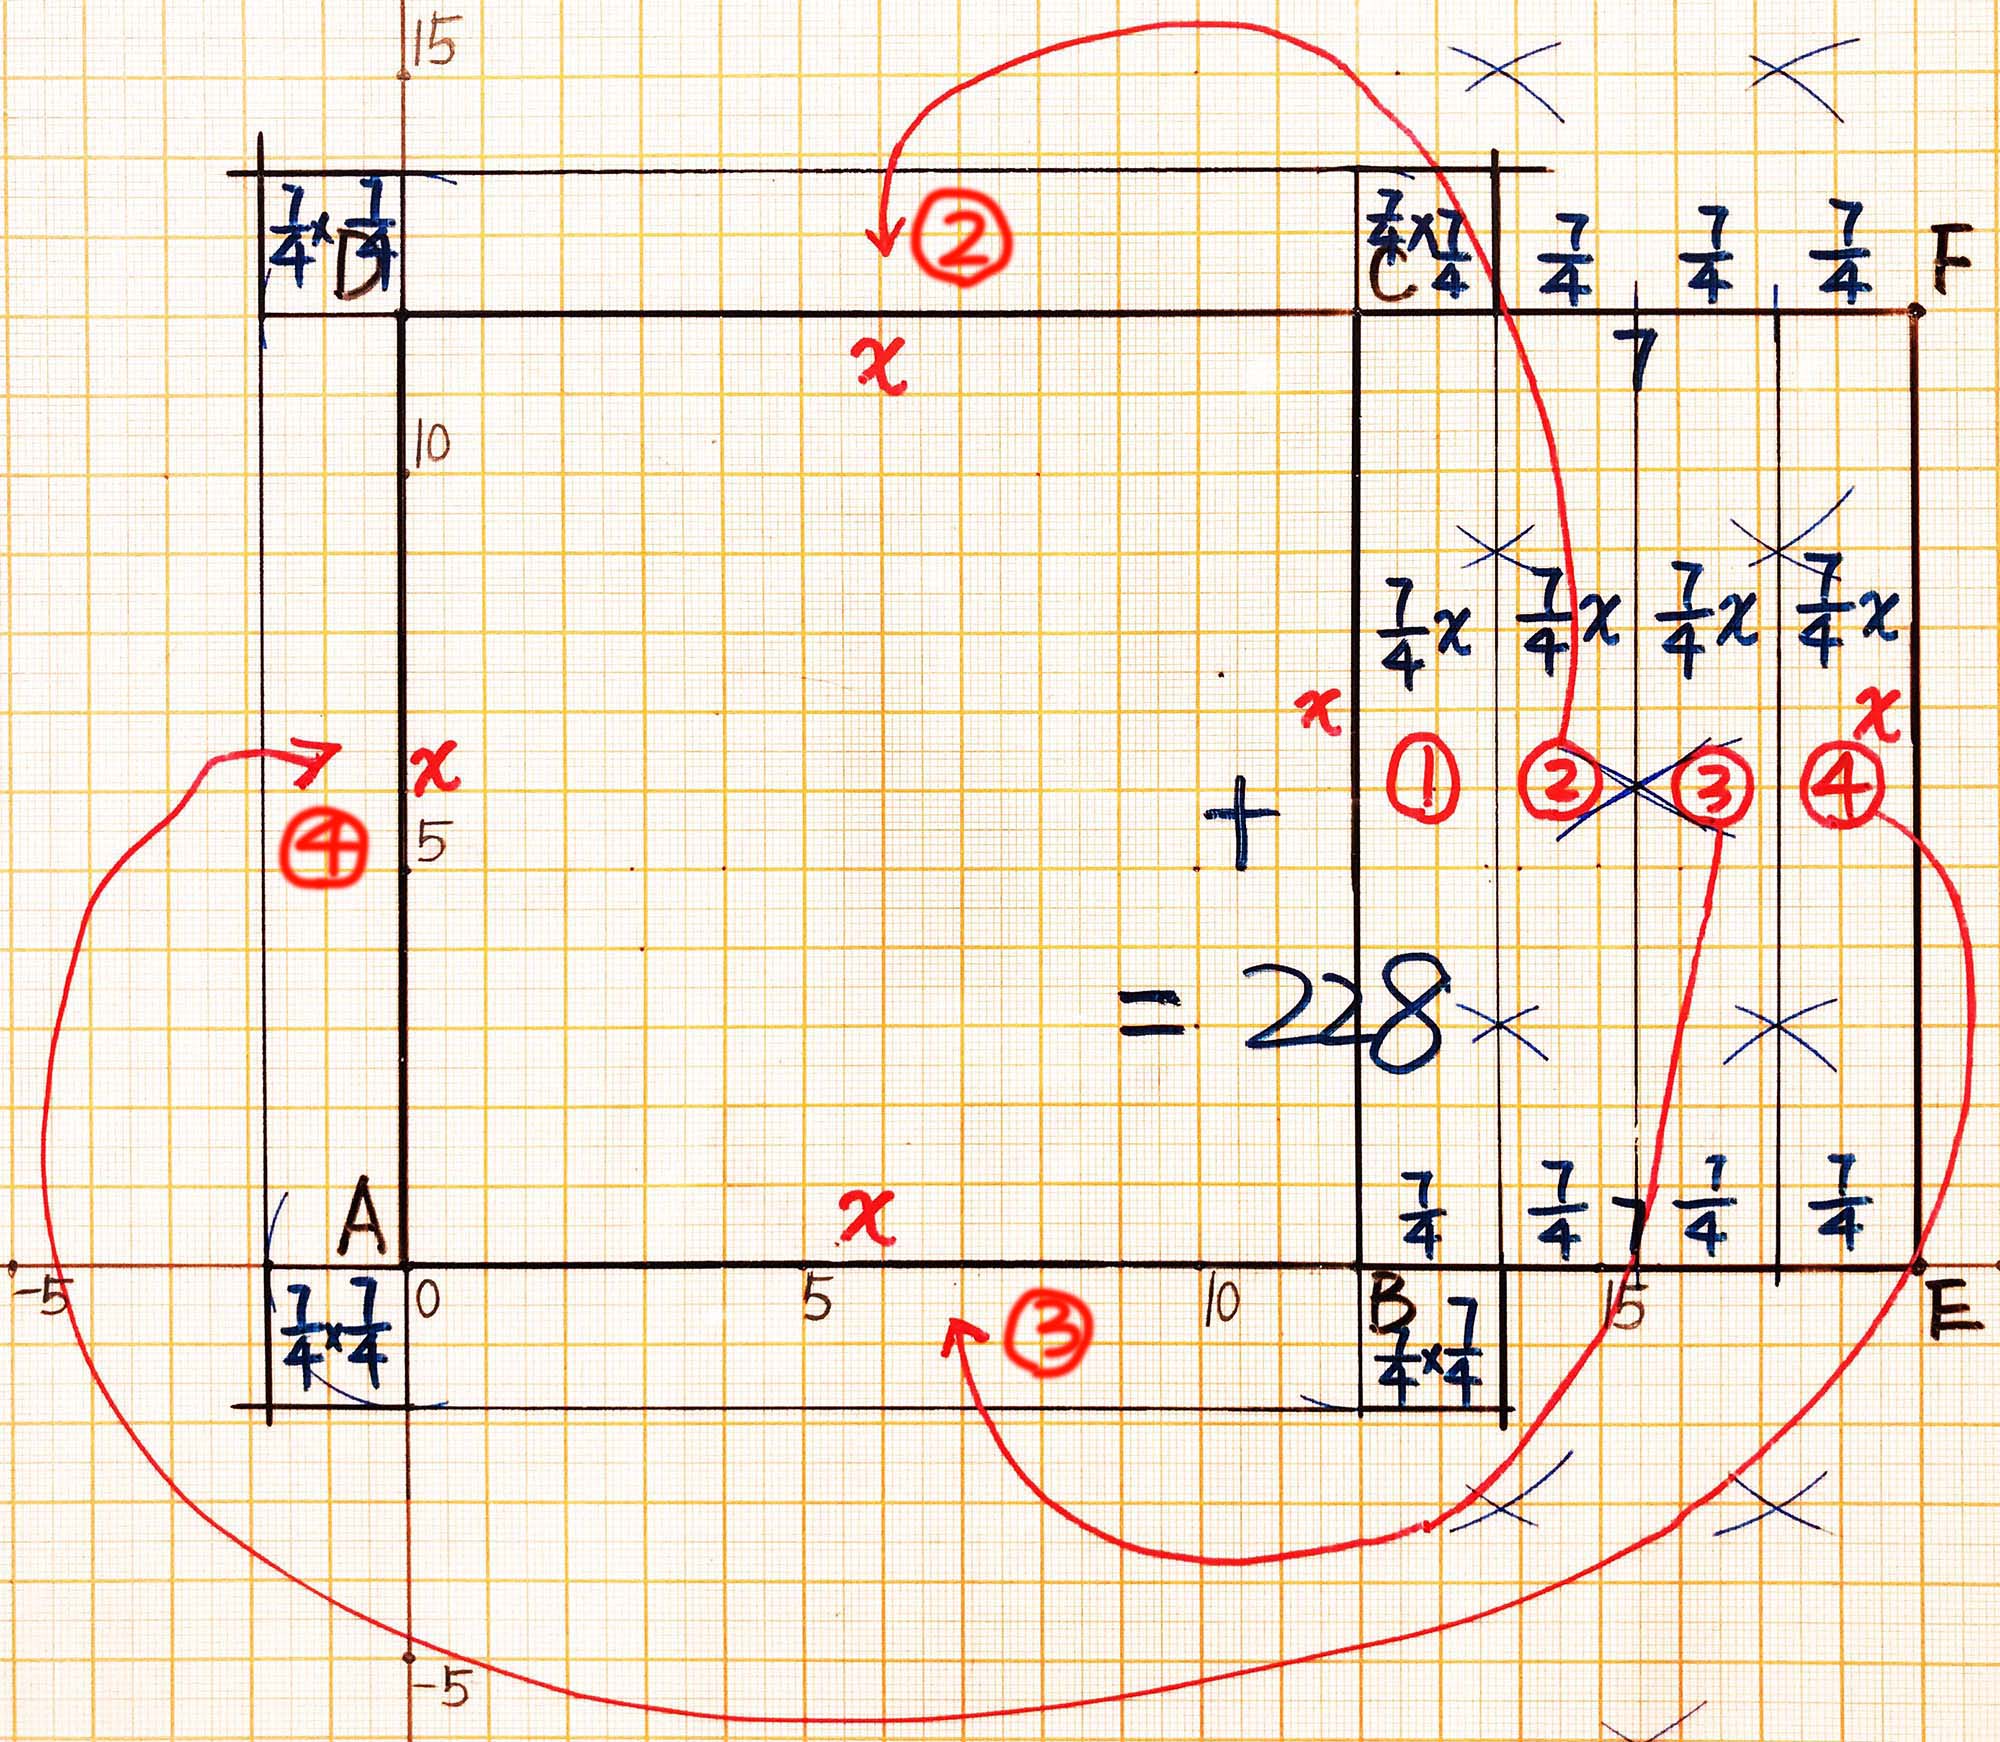 15
7/4 × 7/4
D
②
7/4 × 7/4
C
7/4 7/4 7/4
F
x
7
10
7/4 x 7/4 x 7/4 x 7/4 x
x
x
x
① ② ③ ④
+
④
5
= 228
A
x
7/4 7/4 7 7/4 7/4
-5 0 5 10 B 15 E
7/4 × 7/4
③
7/4 × 7/4
-5